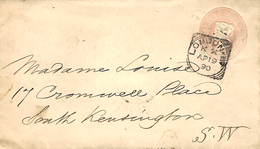 LONDON.S.W
X X
AP 19
90
Madame Louise
17 Cromwell Place
South Kensington
S.W